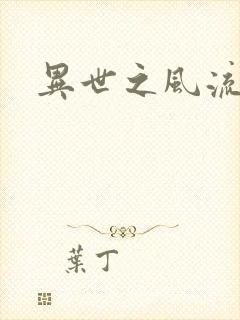 異世之風流
葉丁